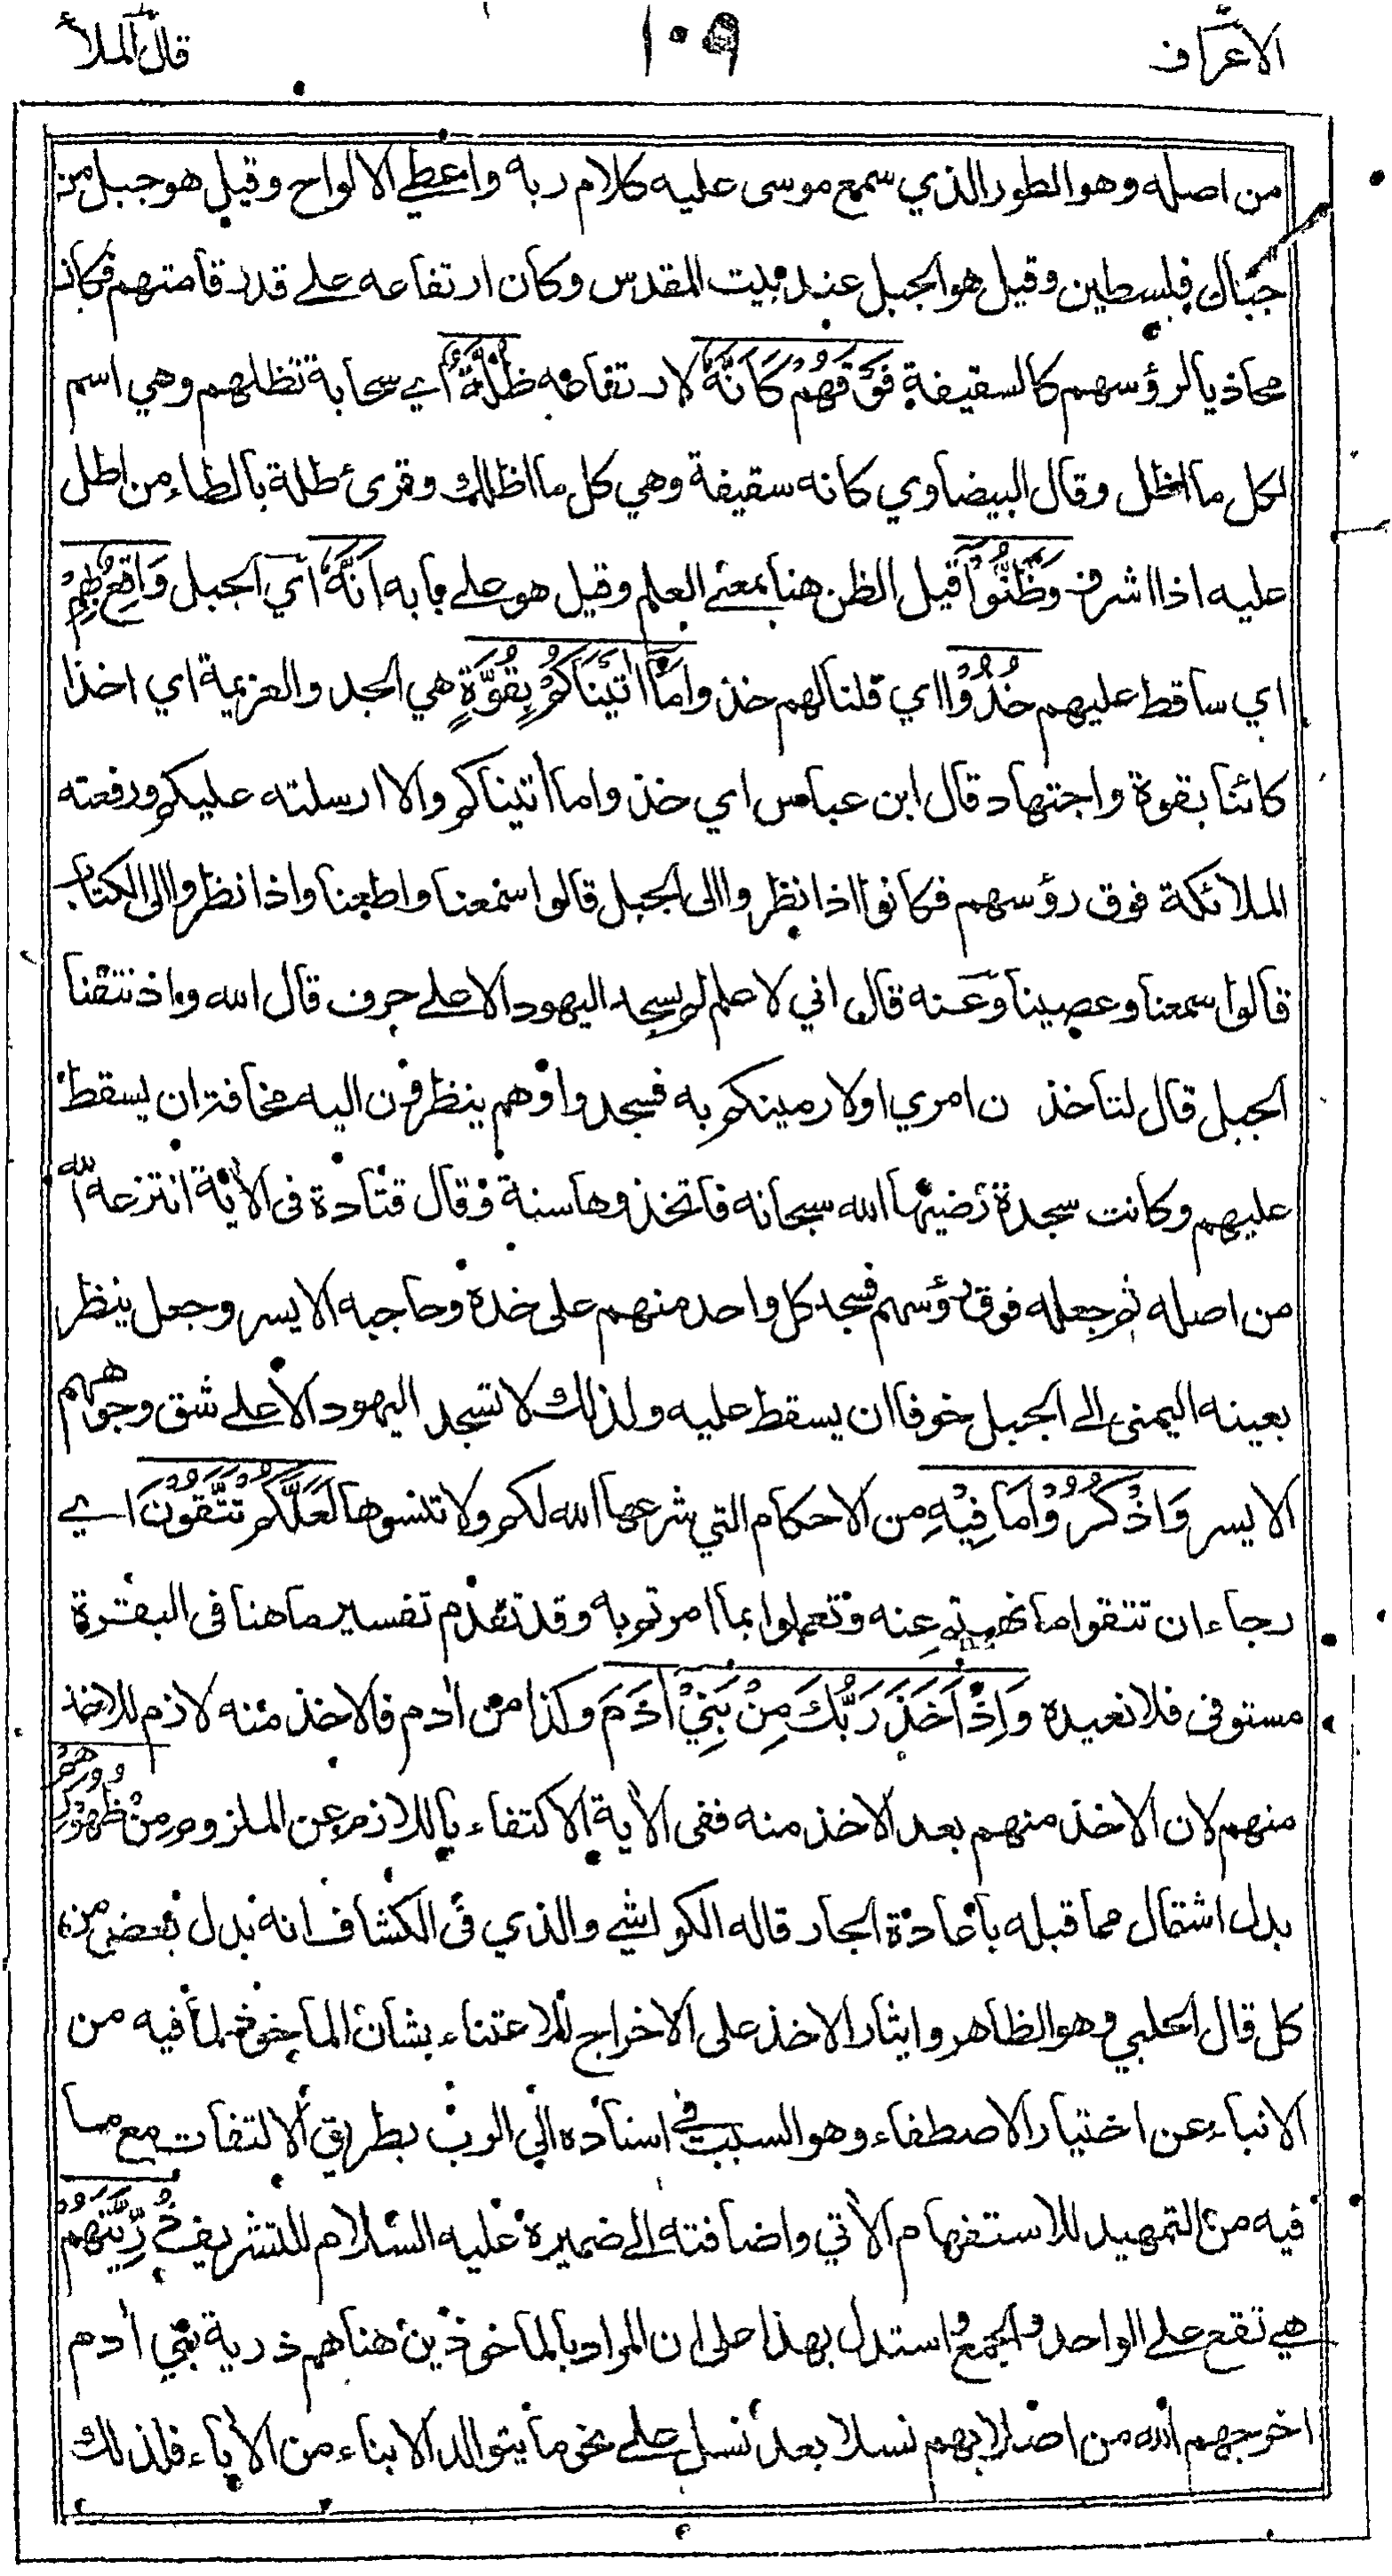 الاعراف ١٠٩ قال الملأ
من اصله وهو الطور الذي سمع موسى عليه كلام ربه واعطي الالواح وقيل هو جبل من
جبال فلسطين وقيل هو الجبل عند بيت المقدس وكان ارتفاعه على قدر قامتهم فكان
محاذيا لرؤسهم كالسقيفة فَوْقَهُمْ كَأَنَّهُ لارتفاعه ظُلَّةٌ اي سحابة تظلهم وهي اسم
لكل ما اظل وقال البيضاوي كانه سقيفة وهي كل ما اظلك وقرئ طلة بالطاء من اطل
عليه اذا اشرف وَظَنُّوا قيل الظن هنا بمعنى العلم وقيل هو على بابه أَنَّهُ اي الجبل وَاقِعٌ بِهِمْ
اي ساقط عليهم خُذُوْا اي قلنا لهم خذوا مَا آتَيْنَاكُمْ بِقُوَّةٍ هي الجد والعزيمة اي اخذا
كائنا بقوة واجتهاد قال ابن عباس اي خذوا ما اتيناكم والا ارسلته عليكم ورفعته
الملائكة فوق رؤسهم فكانوا اذا نظروا الى الجبل قالوا سمعنا واطعنا واذا نظروا الى الكتاب
قالوا سمعنا وعصينا وعنه قال اني لاعلم لم يسجد اليهود الا على حرف قال الله واذ نتقنا
الجبل قال لتاخذن امري اولارمينكم به فسجدوا وهم ينظرون اليه مخافة ان يسقط
عليهم وكانت سجدة رضيها الله سبحانه فاتخذوها سنة وقال قتادة في الأية انتزعه الله
من اصله ثم جعله فوق رؤسهم فسجد كل واحد منهم على خده وحاجبه الايسر وجعل ينظر
بعينه اليمنى الى الجبل خوفا ان يسقط عليه ولذلك لا تسجد اليهود الا على شق وجوههم
الايسر وَاذْكُرُوْا مَا فِيْهِ من الاحكام التي شرعها الله لكم ولا تنسوها لَعَلَّكُمْ تَتَّقُوْنَ اي
رجاء ان تتقوا ما نهيتم عنه وتعملوا بما امرتم به وقد تقدم تفسير ما هنا في البقرة
مستوفى فلا نعيده وَإِذْ أَخَذَ رَبُّكَ مِنْ بَنِيْ آدَمَ وكذا من أدم فالاخذ منه لازم للاخذ
منهم لان الاخذ منهم بعد الاخذ منه ففي الأية الاكتفاء باللازم عن الملزوم مِنْ ظُهُوْرِهِمْ
بدل اشتمال مما قبله باعادة الجار قاله الكواشي والذي في الكشاف انه بدل بعض من
كل قال الحلبي وهو الظاهر وايثار الاخذ على الاخراج للاعتناء بشان الماخوذ لما فيه من
الانباء عن اختيار الاصطفاء وهو السبب في اسناده الى الرب بطريق الالتفات مع ما
فيه من التمهيد للاستفهام الأتي واضافته الى ضميره عليه السلام للتشريف ذُرِّيَّتَهُمْ
هي تقع على الواحد والجمع واستدل بهذا على ان المراد بالماخوذين هنا هم ذرية بني أدم
اخرجهم الله من اصلابهم نسلا بعد نسل على نحو ما يتوالد الابناء من الأباء فلذلك